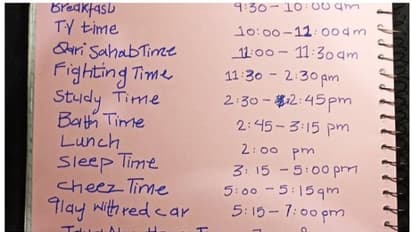 Breakfast 9:30 - 10:00 am
TV time 10:00 - 11:00 am
Qari Sahab Time 11:00 - 11:30 am
Fighting Time 11:30 - 2:30 pm
Study Time 2:30 - 2:45 pm
Bath Time 2:45 - 3:15 pm
Lunch 2:00 pm
Sleep Time 3:15 - 5:00 pm
Cheez Time 5:00 - 5:15 am
Play with red car 5:15 - 7:00 pm